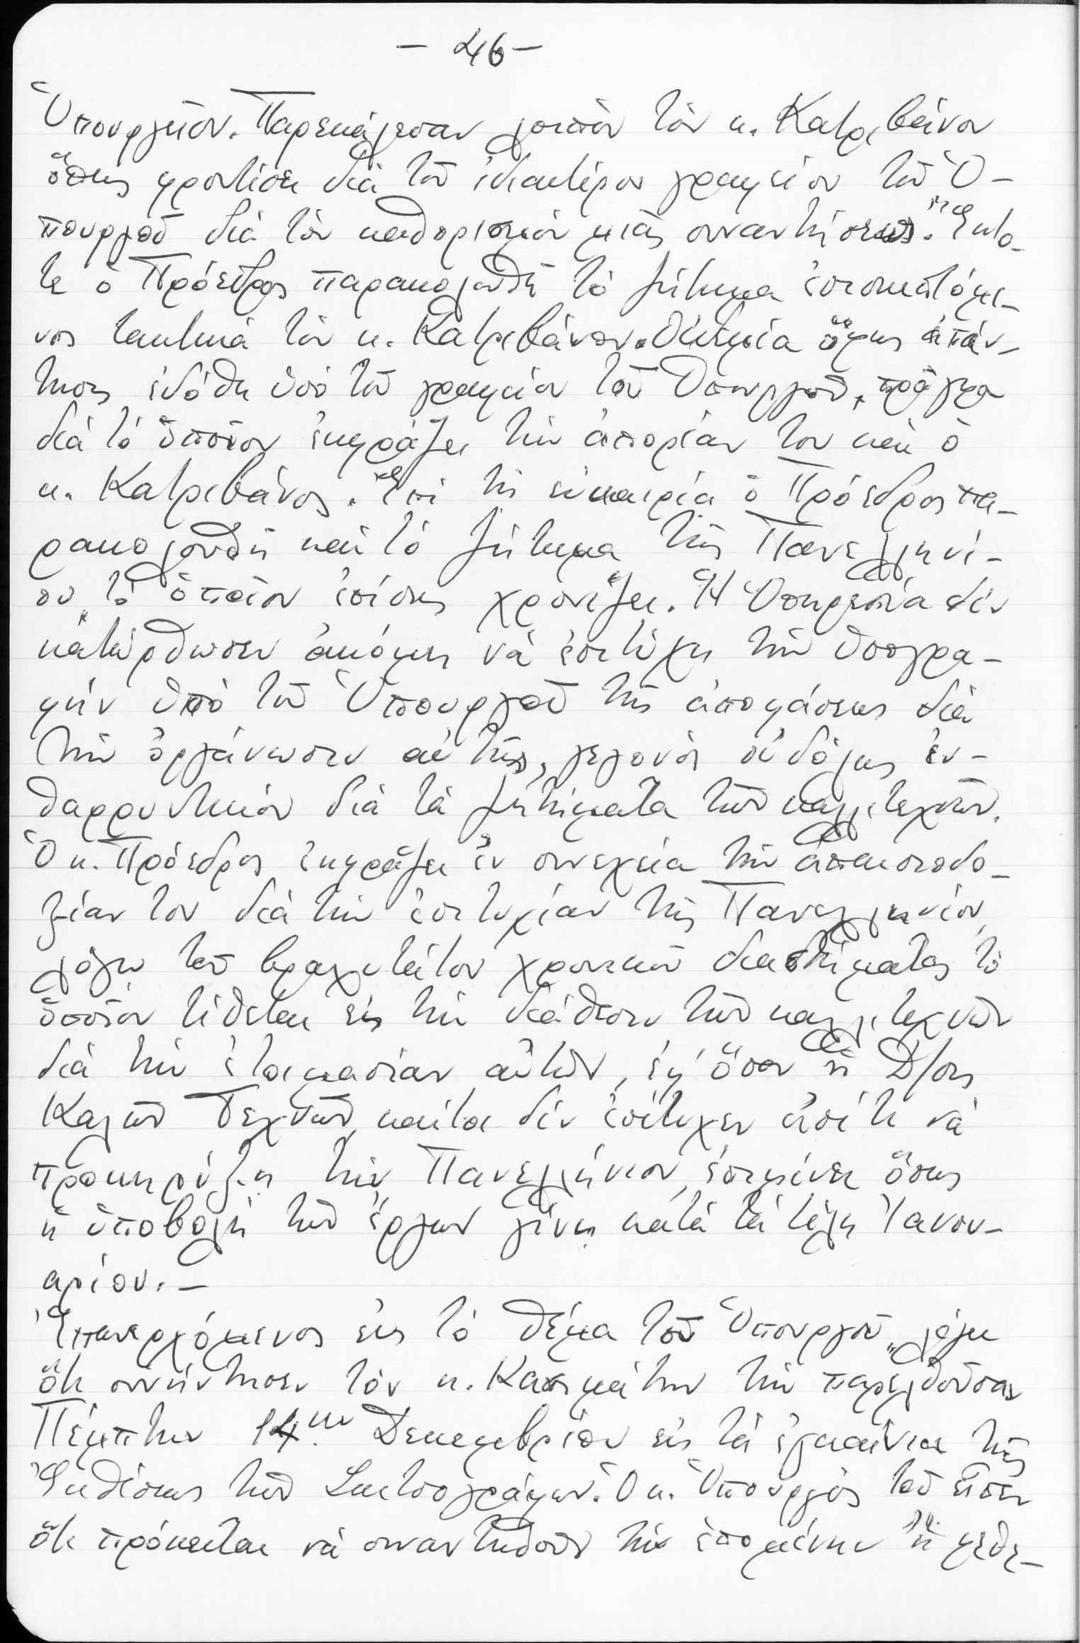 - 46 -
Ὑπουργεῖον. Παρεκάλεσαν λοιπὸν τὸν κ. Κατριβάνον
ὅπως φροντίσει διὰ τοῦ ἰδιαιτέρου γραφείου τοῦ Ὑ-
πουργοῦ διὰ τὸν καθορισμὸν μιᾶς συναντήσεως. Ἔκτο-
τε ὁ Πρόεδρος παρακολουθῆ τὸ ζήτημα ἐπισκεπτόμε-
νος τακτικὰ τὸν κ. Κατριβάνον. Οὐδεμία ὅμως ἀπάν-
τησις ἐδόθη ὑπὸ τοῦ γραφείου τοῦ Ὑπουργοῦ, πρᾶγμα
διὰ τὸ ὁποῖον ἐκφράζει τὴν ἀπορίαν του καὶ ὁ
κ. Κατριβάνος. Ἐπὶ τῇ εὐκαιρίᾳ ὁ Πρόεδρος πα-
ρακολουθῆ καὶ τὸ ζήτημα τῆς Πανελληνί-
ου, τὸ ὁποῖον ἐπίσης χρονίζει. Ἡ Ὑπηρεσία δὲν
κατώρθωσεν ἀκόμη νὰ ἐπιτύχῃ τὴν ὑπογρα-
φὴν ὑπὸ τοῦ Ὑπουργοῦ τῆς ἀποφάσεως διὰ
τὴν ὀργάνωσιν αὐτῆς, γεγονὸς οὐδόλως ἐν-
θαρρυντικὸν διὰ τὰ ζητήματα τῶν καλλιτεχνῶν.
Ὁ κ. Πρόεδρος ἐκφράζει ἐν συνεχείᾳ τὴν ἀπαισιοδο-
ξίαν του διὰ τὴν ἐπιτυχίαν τῆς Πανελληνίου,
λόγῳ τοῦ βραχυτάτου χρονικοῦ διαστήματος τὸ
ὁποῖον τίθεται εἰς τὴν διάθεσιν τῶν καλλιτεχνῶν
διὰ τὴν ἑτοιμασίαν αὐτῶν, ἐφ' ὅσον ἡ Δ/σις
Καλῶν Τεχνῶν, καίτοι δὲν ἐπέτυχεν εἰσέτι νὰ
προκηρύξῃ τὴν Πανελλήνιον, ἐπιμένει ὅπως
ἡ ὑποβολὴ τῶν ἔργων γίνῃ κατὰ τὰ τέλη Ἰανου-
αρίου. -
Ἐπανερχόμενος εἰς τὸ θέμα τοῦ Ὑπουργοῦ, λέγει
ὅτι συνήντησεν τὸν κ. Κασιμάτην τὴν παρελθοῦσαν
Πέμπτην 14ην Δεκεμβρίου εἰς τὰ ἐγκαίνια τῆς
Ἐκθέσεως τῶν Σκιτσογράφων. Ὁ κ. Ὑπουργὸς τοῦ εἶπεν
ὅτι πρόκειται νὰ συναντηθοῦν τὴν ἑπομένην ἢ μεθε-